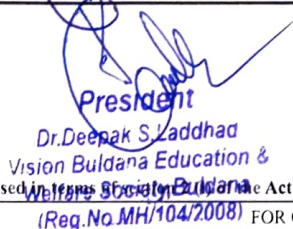 President
Dr.Deepak S.Laddhad
Vision Buldana Education &
Welfare Society Buldana
sed in terms of section of the Act
(Reg.No.MH/104/2008) FOR